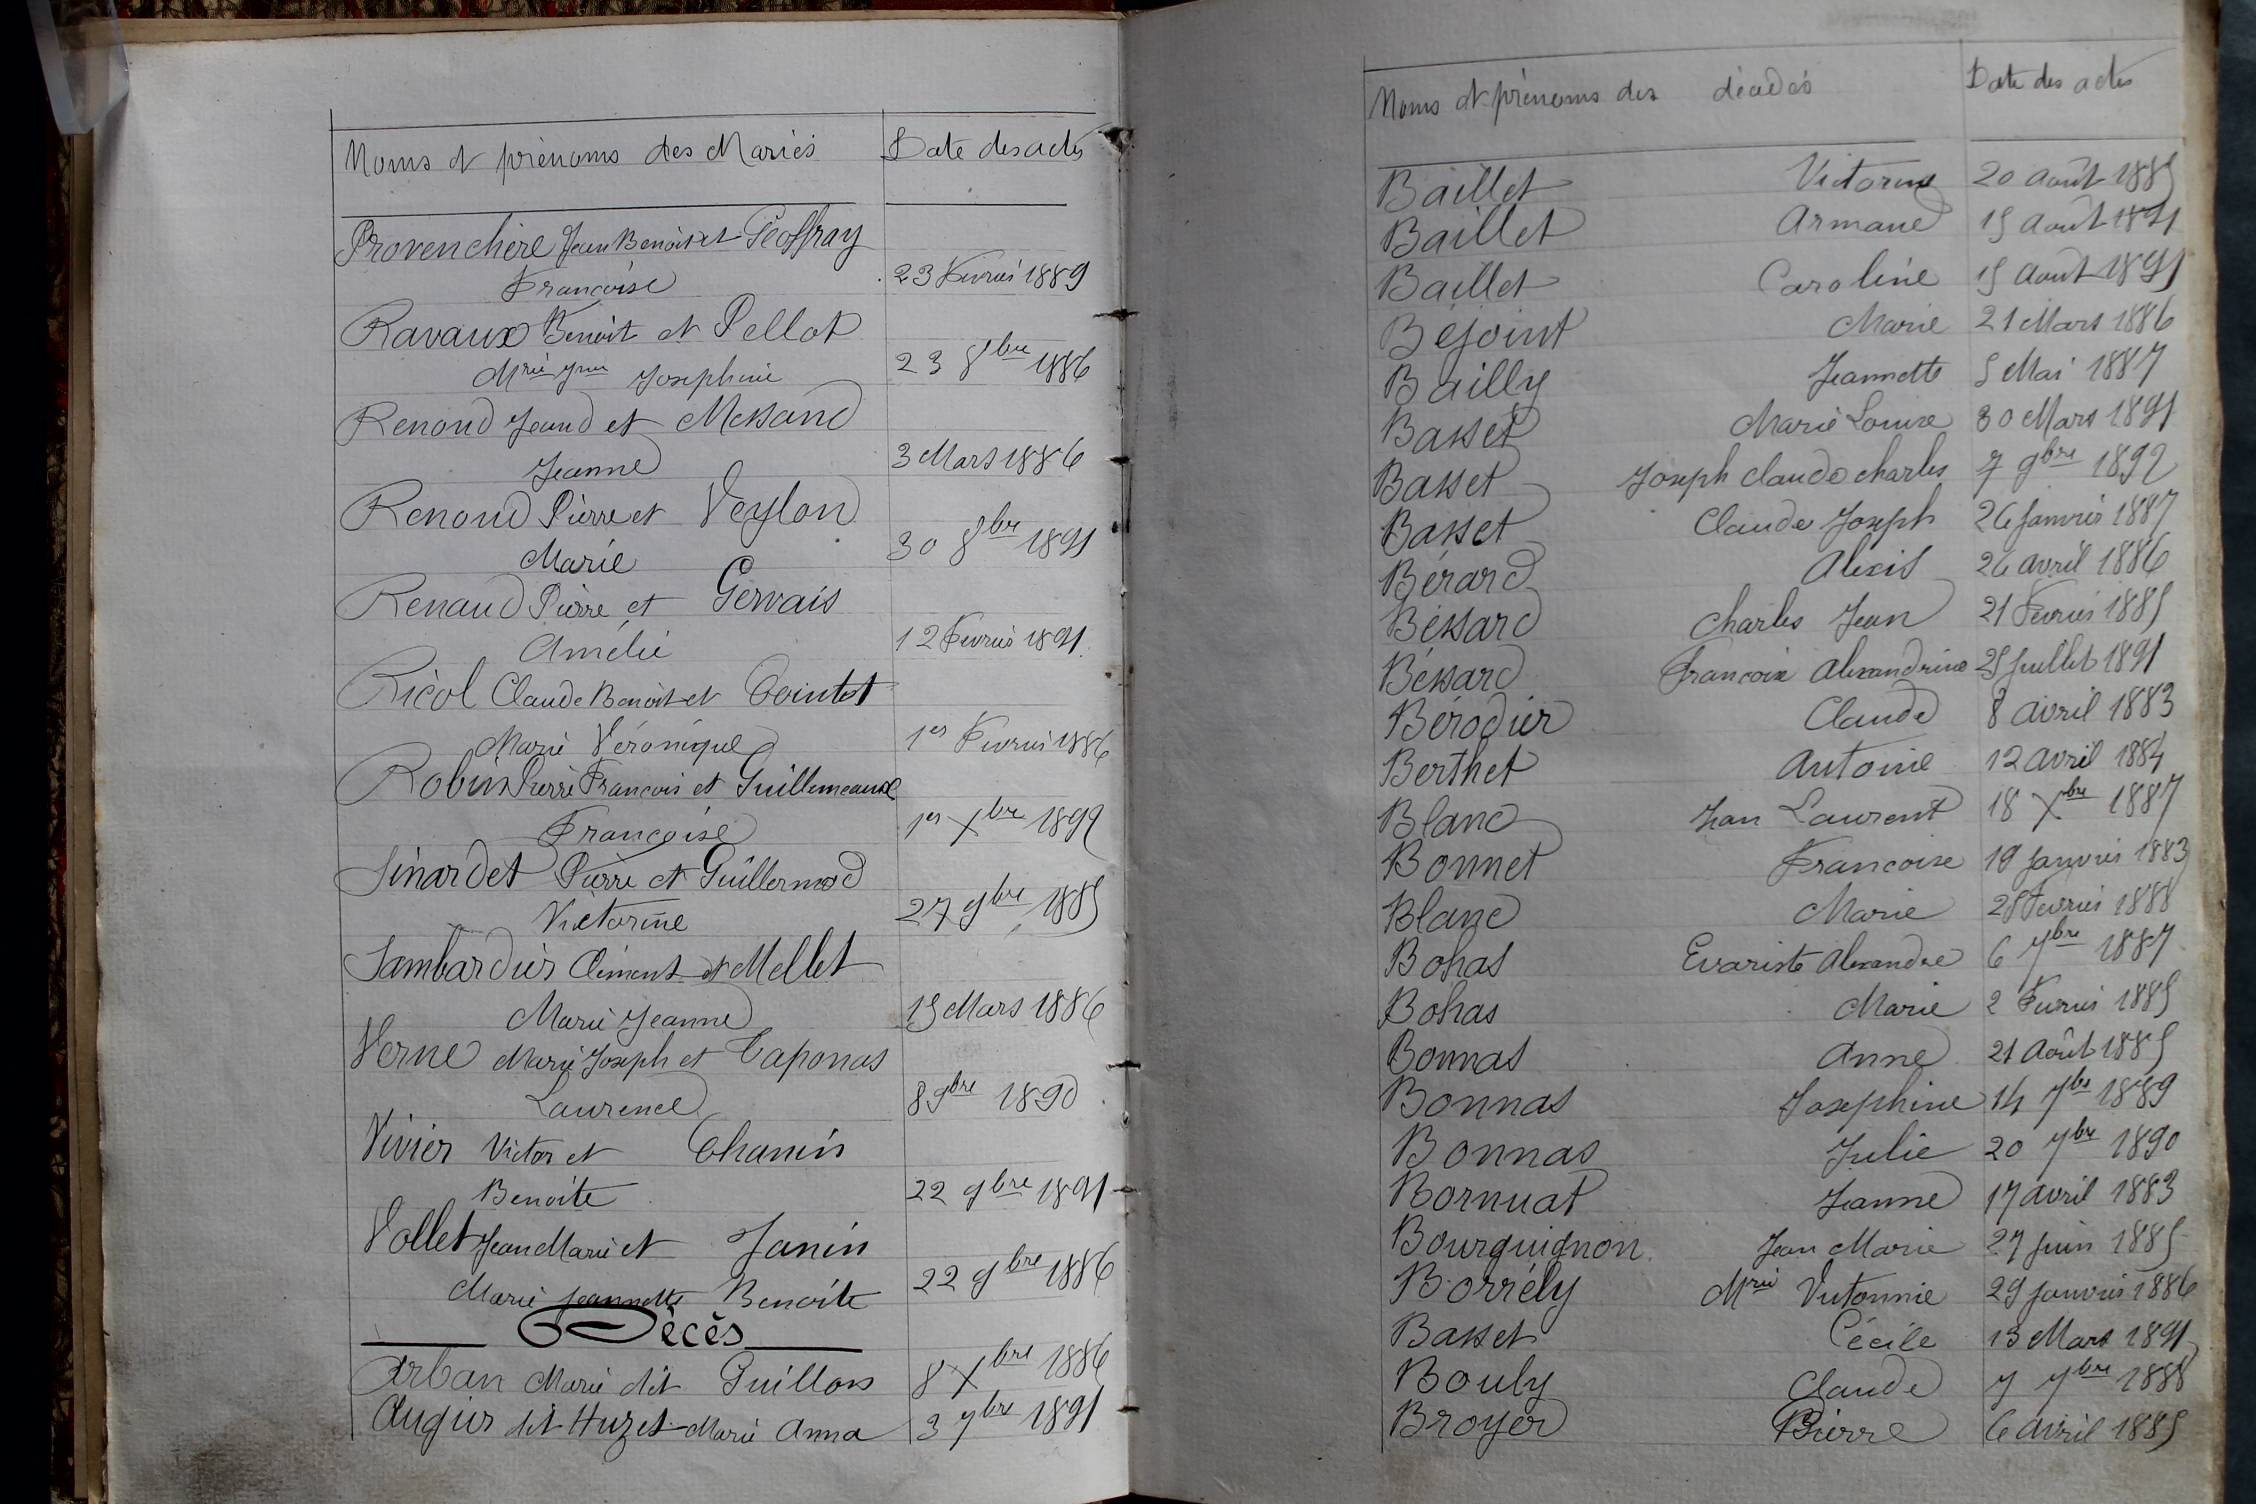 Noms et prénoms des Mariés Date des actes
Provenchère Jean Benoit et Géoffray
Françoise 23 Février 1889
Ravaux Benoit et Pellot
Mrie Joséphine 23 8bre 1886
Renoud Jean et Messand
Jeanne 3 Mars 1886
Renoud Pierre et Veylon
Marie 30 8bre 1891
Renaud Pierre et Gervais
Amélie 12 Février 1891
Ricol Claude Benoit et Cointet
Marie Véronique 1er Février 1886
Robin Pierre François et Guillemeaux
Françoise 1er Xbre 1892
Sinardet Pierre et Guillermod
Victorine 27 9bre 1885
Sambardier Clément et Mellet
Marie Jeanne 15 Mars 1886
Verne Marie Joseph et Taponas
Laurence 8 9bre 1890
Vivier Victor et Chanin
Benoite 22 9bre 1891
Vollet Jean Marie et Janin
Marie Jeannette Benoite 22 9bre 1886
Décès
Arban Marie dit Guillon 8 Xbre 1886
Augier dit Huzet Marie Anna 3 7bre 1891
Noms et prénoms des décédés Date des actes
Baillet Victorine 20 août 1885
Baillet Armand 15 août 1891
Baillet Caroline 15 août 1891
Béjoint Marie 21 Mars 1886
Bailly Jeannette 5 Mai 1887
Basset Marie Louise 30 Mars 1891
Basset Joseph Claude Charles 7 9bre 1892
Basset Claude Joseph 26 Janvier 1887
Bérard Alexis 26 avril 1886
Béssard Charles Jean 21 Février 1885
Béssard Françoise Alexandrine 25 Juillet 1891
Bérodier Claude 8 avril 1883
Berthet Antoine 12 avril 1884
Blanc Jean Laurent 18 Xbre 1887
Bonnet Françoise 19 Janvier 1883
Blanc Marie 28 Février 1888
Bohas Evariste Alexandre 6 7bre 1887
Bohas Marie 2 Février 1885
Bonnas Anne 21 Août 1885
Bonnas Joséphine 14 7bre 1889
Bonnas Julie 20 7bre 1890
Bornuat Jeanne 17 avril 1883
Bourguignon Jean Marie 27 Juin 1885
Borrély Mrie 29 Janvier 1886
Basset Cécile 13 Mars 1891
Bouly Claude 7 7bre 1888
Broyer Pierre 6 avril 1885